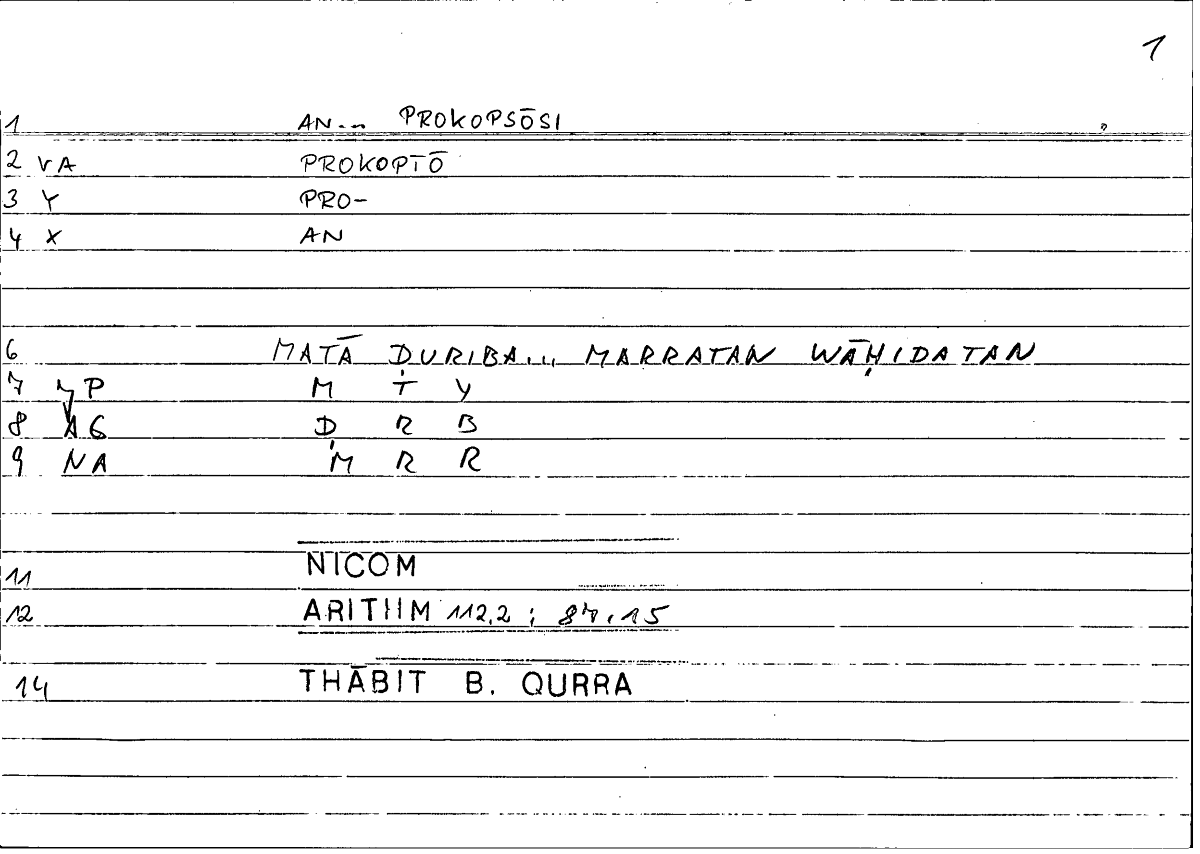 1
1 AN... PROKOPSŌSI
2 VA PROKOPTŌ
3 Y PRO-
4 X AN
6 MATĀ ḌURIBA... MARRATAN WĀḤIDATAN
7 P M T Y
8 AG Ḍ R B
9 NA M R R
11 NICOM
12 ARITHM 112,2 ; 87,15
14 THĀBIT B. QURRA